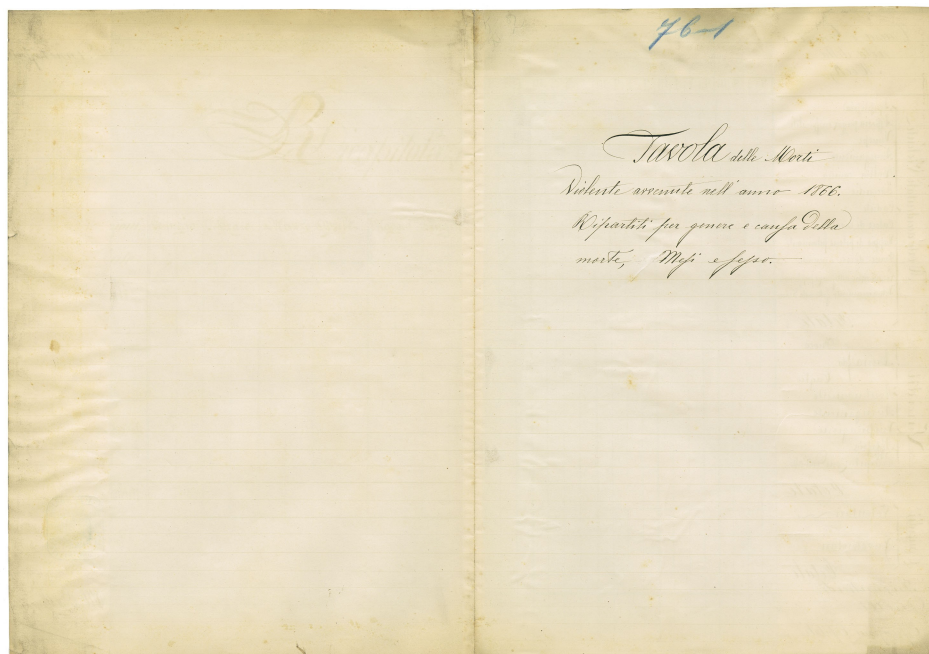 76-1
Tavola delle Morti
Violente avvenute nell' anno 1866.
Ripartiti per genere e causa della
morte, Mesi e sesso.